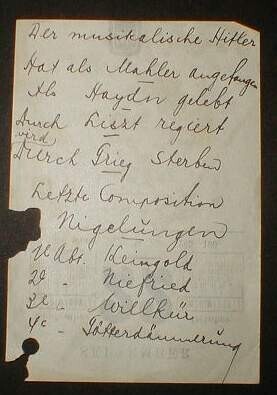 Der musikalische Hitler
Hat als Mahler angefangen
Als Haydn gelebt
Durch Liszt regiert
wird
Durch Grieg sterben
Letzte Composition
Nigelungen
1e Abt. Keingold
2e " Niefried
3e " Willkür
4e " Götterdämmerung